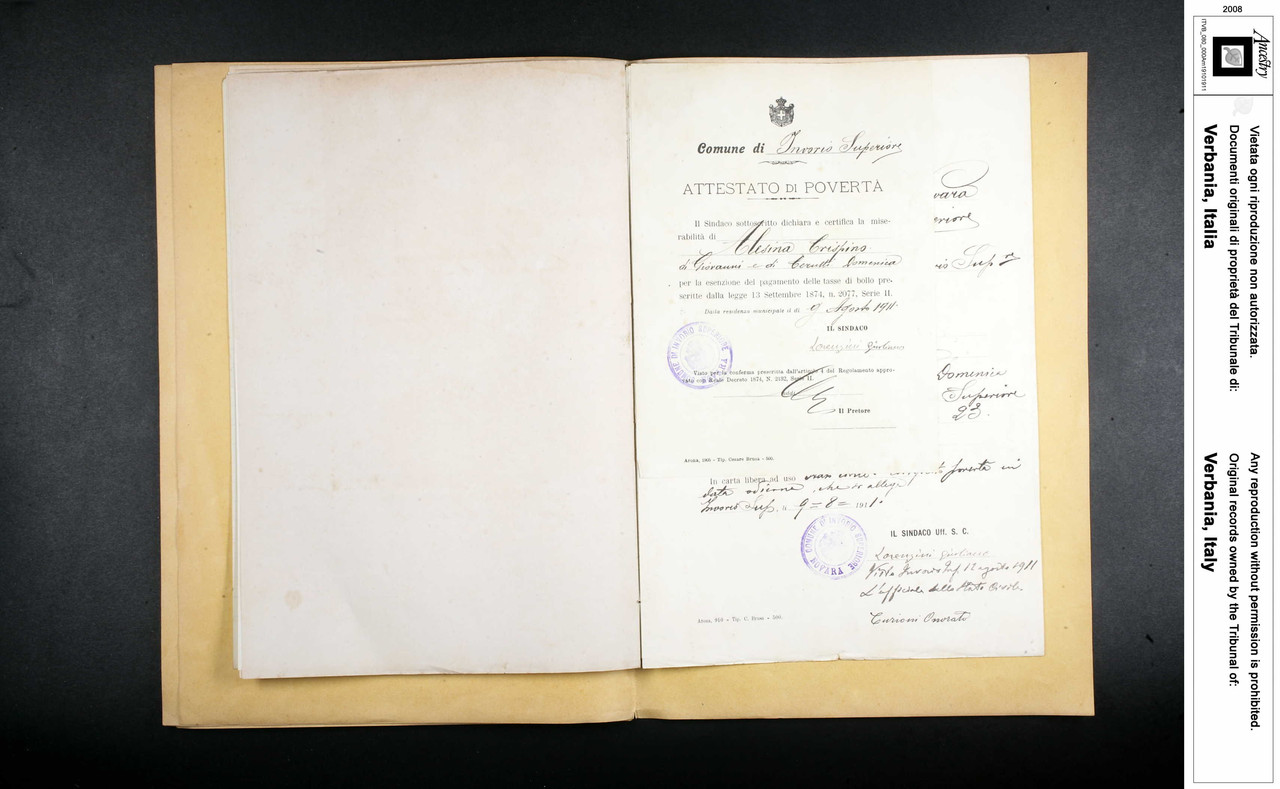 Comune di Invorio Superiore
ATTESTATO DI POVERTÀ
Il Sindaco sottoscritto dichiara e certifica la mise-
rabilità di Alesina Crispino
di Giovanni e di Cerutti Domenica
per la esenzione del pagamento delle tasse di bollo pre-
scritte dalla legge 13 Settembre 1874, n. 2077, Serie II.
Dalla residenza municipale il dì 9 Agosto 1911
IL SINDACO
Lorenzini Giuliano
Visto per la conferma prescritta dall'articolo 4 del Regolamento appro-
vato con Reale Decreto 1874, N. 2132, Serie II.
Il Pretore
Arona, 1908 - Tip. Cesare Brusa - 500.
In carta libera ad uso povertà in
data odierna che si allega
Invorio Sup. li 9 = 8 = 1911.
COMUNE DI INVORIO SUPERIORE
NOVARA
IL SINDACO Uff. S. C.
Lorenzini Giuliano
Visto Invorio Inf. 12 agosto 1911
L'ufficiale dello Stato Civile
Curioni Onorato
Arona, 910 - Tip. C. Brusa - 500.
vara
eriore
io Sup re
Domenica
Superiore
23.
2008
Ancestry
ITVB_080_003Am19101911
Vietata ogni riproduzione non autorizzata.
Documenti originali di proprietà del Tribunale di:
Verbania, Italia
Any reproduction without permission is prohibited.
Original records owned by the Tribunal of:
Verbania, Italy